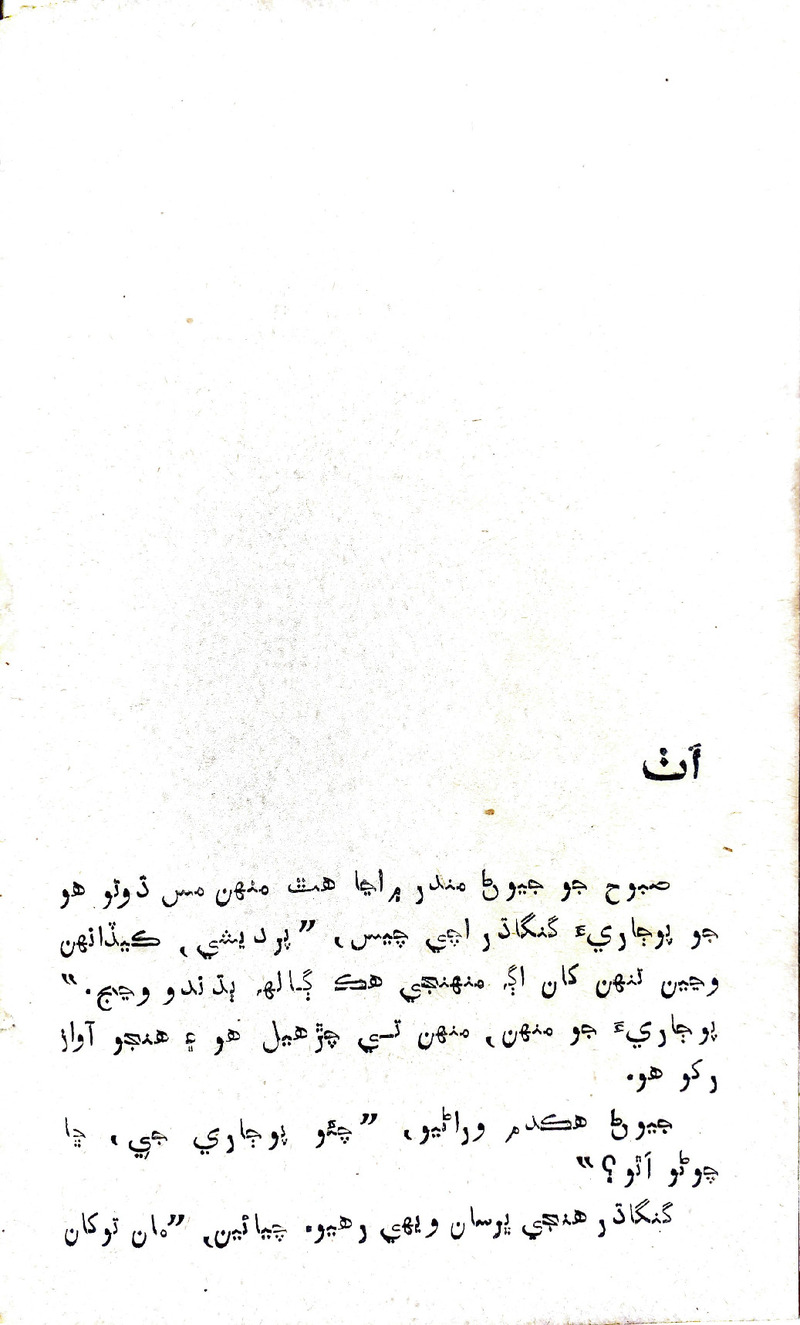 اَٺ
صبوح جو جيوڻ مندر ۾ اڃا هٿ منهن مس ڌوتو هو
جو پوڄاريءَ گنگاڌر اچي چيس، ”پرديشي، ڪيڏانهن
وڃين تنهن کان اڳ منهنجي هڪ ڳالهه ٻڌندو وڃج.“
پوڄاريءَ جو منهن، منهن تي چڙهيل هو ۽ هنجو آواز
رکو هو.
جيوڻ هڪدم وراڻيو، ”چئو پوڄاري جي، ڇا
چوڻو اَٿو؟“
گنگاڌر هنجي ڀرسان ويهي رهيو. چيائين، ”مان توکان